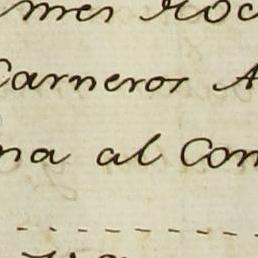 mes Roc
Carneros A
na al Con